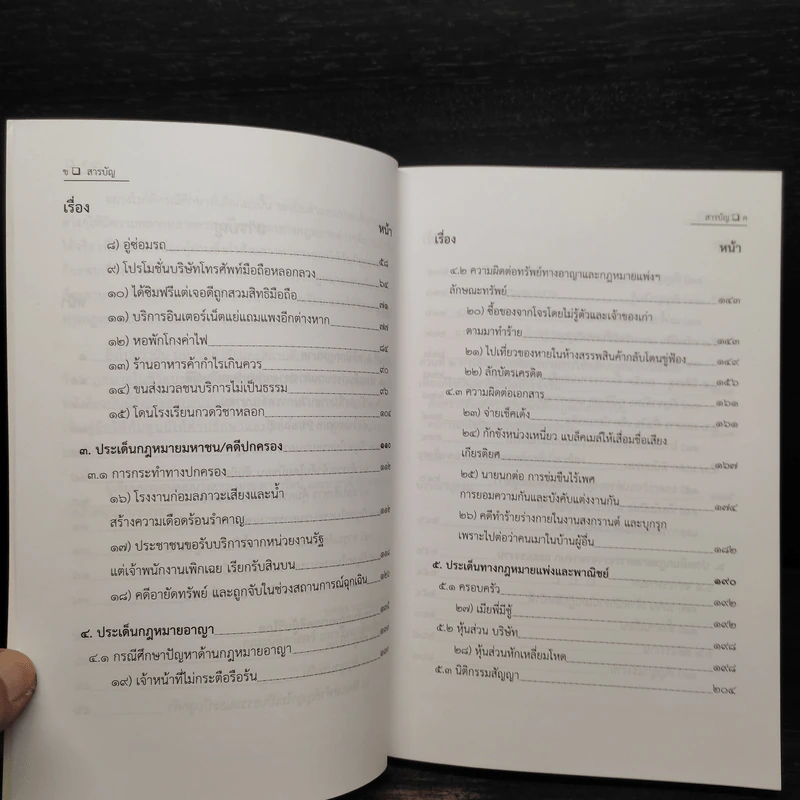 ข ❑ สารบัญ
เรื่อง
หน้า
๘) อู่ซ่อมรถ ๕๘
๙) โปรโมชั่นบริษัทโทรศัพท์มือถือหลอกลวง ๖๔
๑๐) ได้ซิมฟรีแต่เจอดีถูกสวมสิทธิมือถือ ๗๑
๑๑) บริการอินเตอร์เน็ตแย่แถมแพงอีกต่างหาก ๗๗
๑๒) หอพักโกงค่าไฟ ๘๔
๑๓) ร้านอาหารค้ากำไรเกินควร ๙๐
๑๔) ขนส่งมวลชนบริการไม่เป็นธรรม ๙๖
๑๕) โดนโรงเรียนกวดวิชาหลอก ๑๐๔
๓. ประเด็นกฎหมายมหาชน/คดีปกครอง ๑๑๐
๓.๑ การกระทำทางปกครอง
๑๖) โรงงานก่อมลภาวะเสียงและน้ำ
สร้างความเดือดร้อนรำคาญ
๑๗) ประชาชนขอรับบริการจากหน่วยงานรัฐ
แต่เจ้าพนักงานเพิกเฉย เรียกรับสินบน
๑๘) คดีอายัดทรัพย์ และถูกจับในช่วงสถานการณ์ฉุกเฉิน
๔. ประเด็นกฎหมายอาญา
๔.๑ กรณีศึกษาปัญหาด้านกฎหมายอาญา
๑๙) เจ้าหน้าที่ไม่กระตือรือร้น
สารบัญ ❑ ค
เรื่อง
หน้า
๔.๒ ความผิดต่อทรัพย์ทางอาญาและกฎหมายแพ่งฯ
ลักษณะทรัพย์ ๑๔๓
๒๐) ซื้อของจากโจรโดยไม่รู้ตัวและเจ้าของเก่า
ตามมาทำร้าย ๑๔๓
๒๑) ไปเที่ยวของหายในห้างสรรพสินค้ากลับโดนขู่ฟ้อง ๑๔๙
๒๒) ลักบัตรเครดิต ๑๕๖
๔.๓ ความผิดต่อเอกสาร ๑๖๑
๒๓) จ่ายเช็คเด้ง ๑๖๑
๒๔) กักขังหน่วงเหนี่ยว แบล็คเมล์ให้เสื่อมชื่อเสียง
เกียรติยศ ๑๖๗
๒๕) นายนกต่อ การข่มขืนไร้เพศ
การยอมความกันและบังคับแต่งงานกัน ๑๗๔
๒๖) คดีทำร้ายร่างกายในงานสงกรานต์ และบุกรุก
เพราะไปต่อว่าคนเมาในบ้านผู้อื่น ๑๘๒
๕. ประเด็นทางกฎหมายแพ่งและพาณิชย์ ๑๙๐
๕.๑ ครอบครัว ๑๙๒
๒๗) เมียพี่มีชู้ ๑๙๒
๕.๒ หุ้นส่วน บริษัท ๑๙๘
๒๘) หุ้นส่วนหักเหลี่ยมโหด ๑๙๘
๕.๓ นิติกรรมสัญญา ๒๐๔